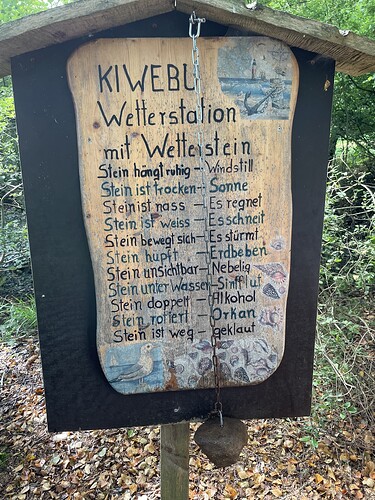 KIWEBU
Wetterstation
mit Wetterstein
Stein hängt ruhig - Windstill
Stein ist trocken - Sonne
Stein ist nass - Es regnet
Stein ist weiss - Es schneit
Stein bewegt sich - Es stürmt
Stein hüpft - Erdbeben
Stein unsichtbar - Nebelig
Stein unter Wasser - Sintflut
Stein doppelt - Alkohol
Stein rotiert - Orkan
Stein ist weg - geklaut